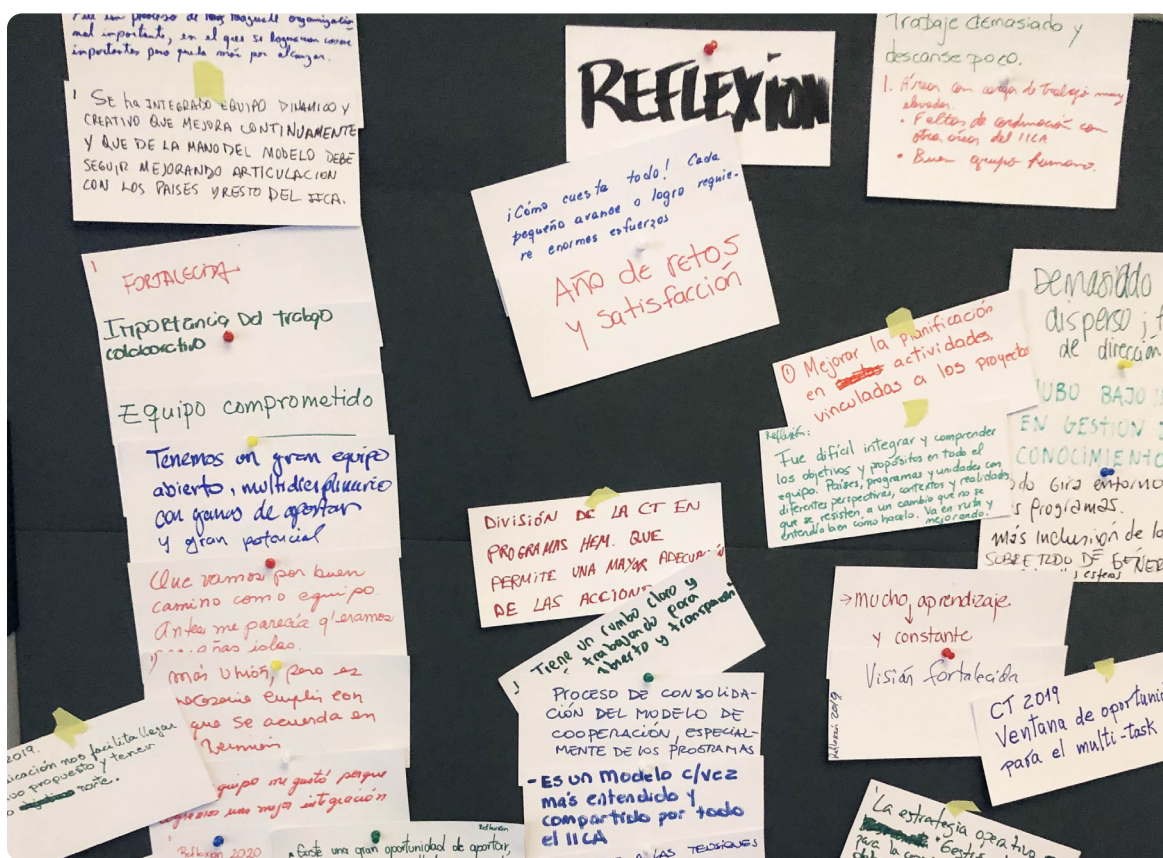 Fue un proceso de
organizacio
nal importante, en el que se lograron cosas
importantes pero queda más por alcanzar.
1 SE ha INTEGRADO EQUIPO DINAMICO Y
CREATIVO QUE MEJORA CONTINUAMENTE
Y QUE DE LA MANO DEL MODELO DEBE
SEGUIR MEJORANDO ARTICULACION
CON LOS PAISES Y RESTO DEL IICA.
1
FORTALECIDA
Importancia Del trabajo
colaborativo
Equipo comprometido
Tenemos un gran equipo
abierto, multidisciplinario
con ganas de aportar
y gran potencial
Que vamos por buen
camino como equipo.
Antes me parecía q'eramos
islas.
más unión, pero es
cumplir con
que se acuerda en
2019.
icación nos facilita llegar
propuesto y tener
norte.
quipo me gustó porque
una mejor integración
Reflexión 2020
Reflexión
una gran oportunidad de aportar,
REFLEXION
¡Cómo cuesta todo! Cada
pequeño avance o logro requie-
re enormes esfuerzos
Año de retos
y satisfacción
DIVISIÓN DE LA CT EN
PROGRAMAS HEM. QUE
PERMITE UNA MAYOR
DE LAS
Tiene un rumbo claro y
trabajando para
PROCESO DE CONSOLIDA-
CIÓN DEL MODELO DE
COOPERACIÓN, ESPECIAL-
MENTE DE LOS PROGRAMAS
- ES un Modelo c/vez
más entendido y
compartido por todo
el IICA
A LAS TENSIONES
Trabaje demasiado y
descanse poco.
1. Áreas con carga de trabajo muy
elevadas.
• Faltas de cordinación con
otras áreas del IICA
• Buen grupo humano.
① Mejorar la planificación
en actividades,
vinculados a los proyectos
Reflexión:
Fue difícil integrar y comprender
los objetivos y propósitos en todo el
equipo. Países, programas y unidades con
diferentes perspectivas, contextos y realidades
que se resisten a un cambio que no se
entendía bien cómo hacerlo. Va en ruta y
mejorando.
Demasiado
disperso ¡
de dirección
UBO BAJO
EN GESTION
CONOCIMIENTO
do Gira entorno
Programas.
más inclusión de
SOBRETODO DE GÉNER
→ mucho aprendizaje
y constante
Visión fortalecida
Reflexión 2019
CT 2019
Ventana de oportuni
para el multi-task
La estrategia operativa